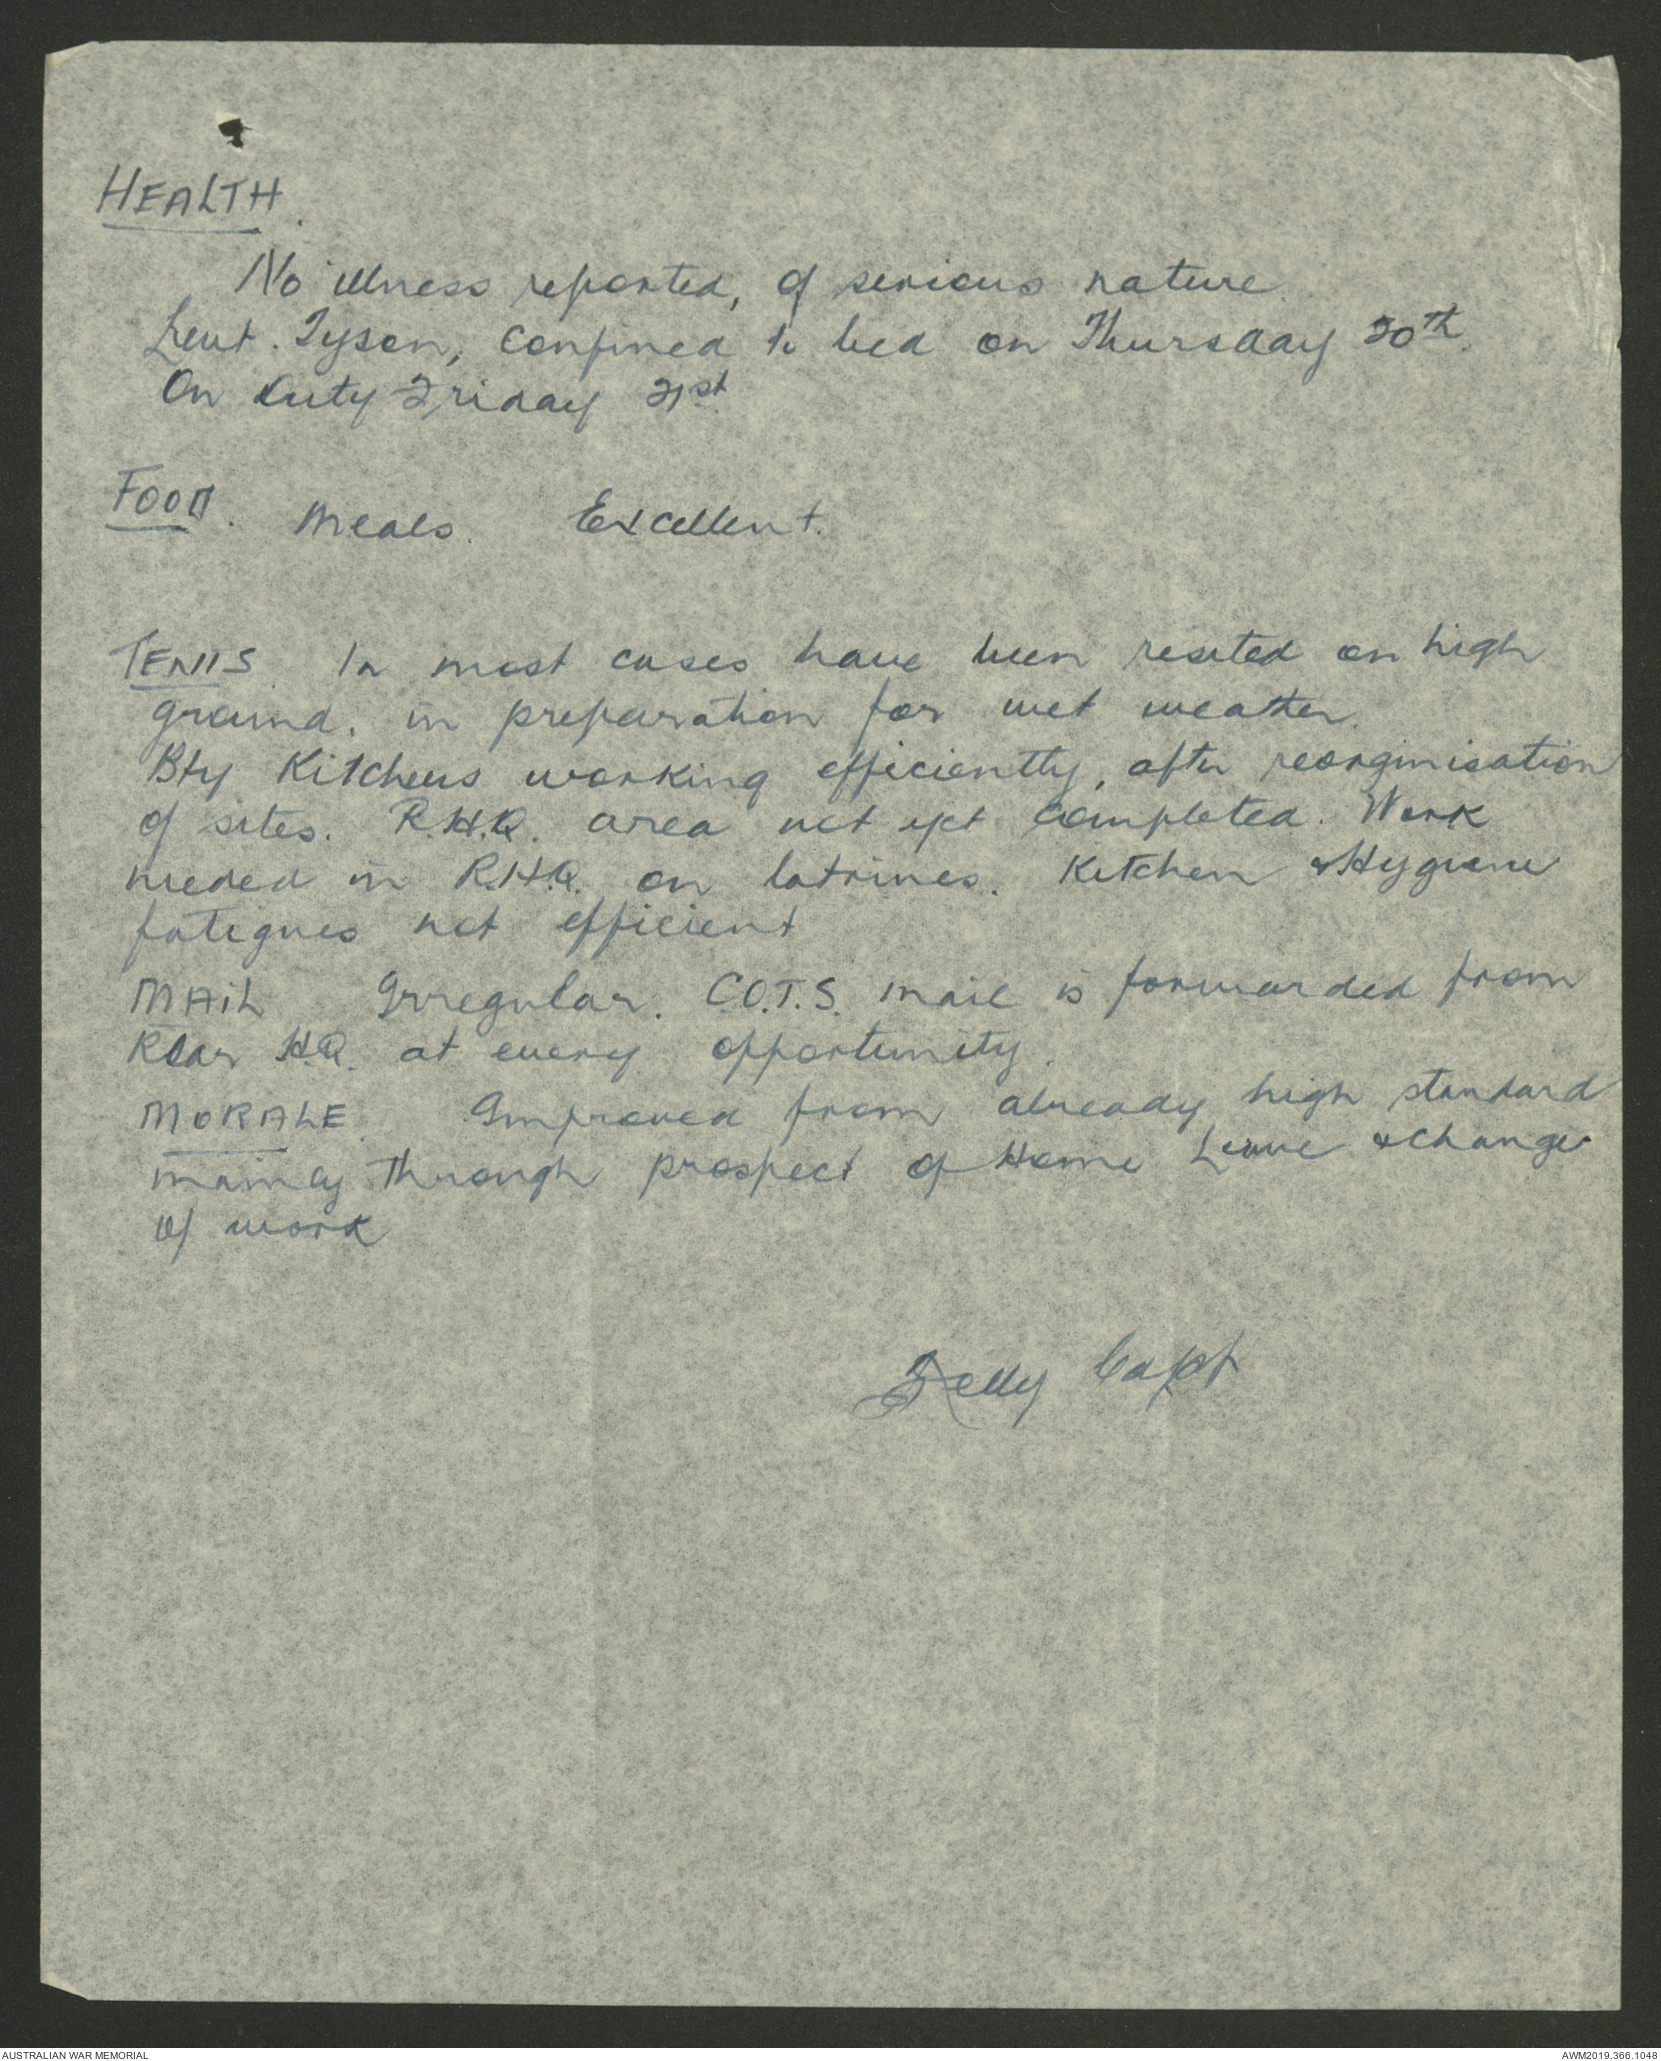 HEALTH.
No illness reported, of serious nature.
Lieut. Tyson, confined to bed on Thursday 20th.
On Duty Friday 21st.
FOOD. Meals. Excellent.
TENTS. In most cases have been resited on high
ground, in preparation for wet weather.
Bty Kitchens working efficiently, after reorginisation
of sites. R.H.Q. area not yet completed. Work
needed in R.H.Q. on latrines. Kitchen & Hygiene
fatigues not efficient
MAIL Irregular. C.O.T.S. mail is forwarded from
Rear HQ. at every opportunity.
MORALE. Improved from already high standard
mainly through prospect of Home Leave & change
of work
Capt
AUSTRALIAN WAR MEMORIAL
AWM2019.366.1048